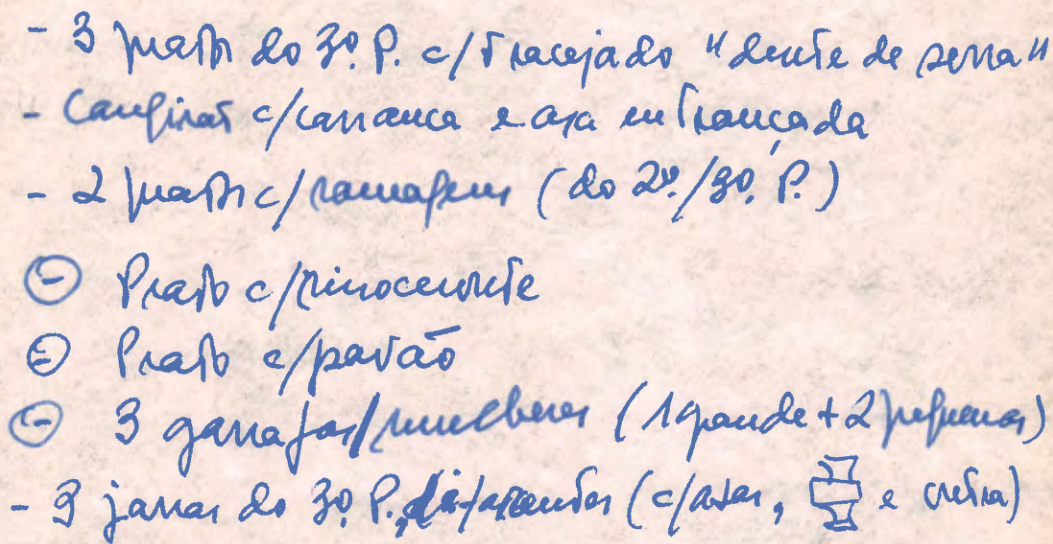 - 3 pratos do 3º. P. c/ tracejado "dente de serra"
- Cangirão c/ carranca e asa entrançada
- 2 pratos c/ ramagens (do 2º./3º. P.)
- Prato c/ rinoceronte
- Prato c/ pavão
- 3 garrafas/mulheres (1 grande + 2 pequenas)
- 3 jarras do 3º. P., (c/ asas, e outra)